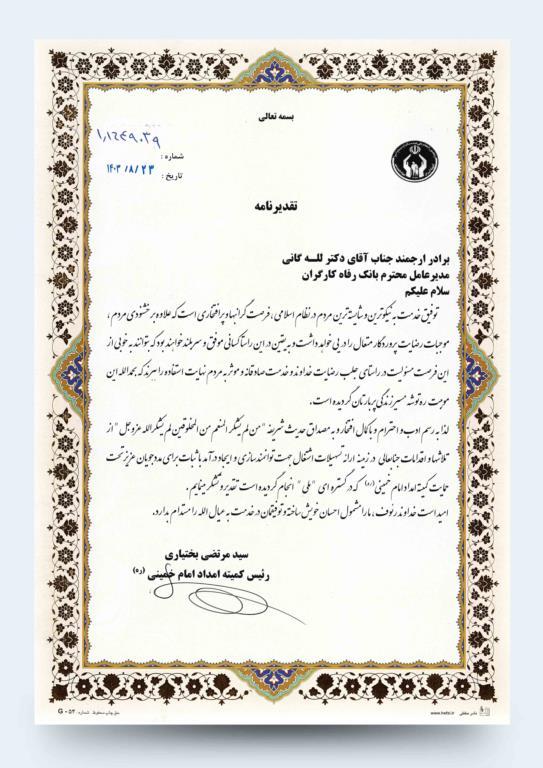 بسمه تعالی
۱,۱۲۴۹۰۳۹
شماره :
تاریخ : ۱۴۰۳/۸/۲۳
تقدیرنامه
برادر ارجمند جناب آقای دکتر للـه گانی
مدیرعامل محترم بانک رفاه کارگران
سلام علیکم
توفیق خدمت به نیکوترین و شایسته‌ترین مردم در نظام اسلامی، فرصت گرانبها و پرافتخاری است که علاوه بر خشنودی مردم،
موجبات رضایت پروردگار متعال را در پی خواهد داشت و به یقین در این راستا کسانی موفق و سربلند خواهند بود که بتوانند به خوبی از
این فرصت مسئولیت در راستای جلب رضایت خداوند و خدمت صادقانه و موثر به مردم نهایت استفاده را ببرند که بحمدالله این
موهبت ره توشه مسیر زندگی پربارتان گردیده است.
لذا به رسم ادب و احترام و با کمال افتخار و به مصداق حدیث شریفه "من لم یشکر المنعم من المخلوقین لم یشکر الله عزوجل" از
تلاشها و اقدامات جنابعالی در زمینه ارائه تسهیلات اشتغال جهت توانمندسازی و ایجاد درآمد با ثبات برای مددجویان عزیز تحت
حمایت کمیته امداد امام خمینی (ره) که در گستره ای "ملی" انجام گردیده است تقدیر و تشکر مینمایم.
امید است خداوند رئوف، ما را مشمول احسان خویش ساخته و توفیقمان در خدمت به عیال الله را مستدام بدارد.
سید مرتضی بختیاری
رئیس کمیته امداد امام خمینی (ره)
حق چاپ محفوظ شماره: G - ۵۳
www.hafzi.ir